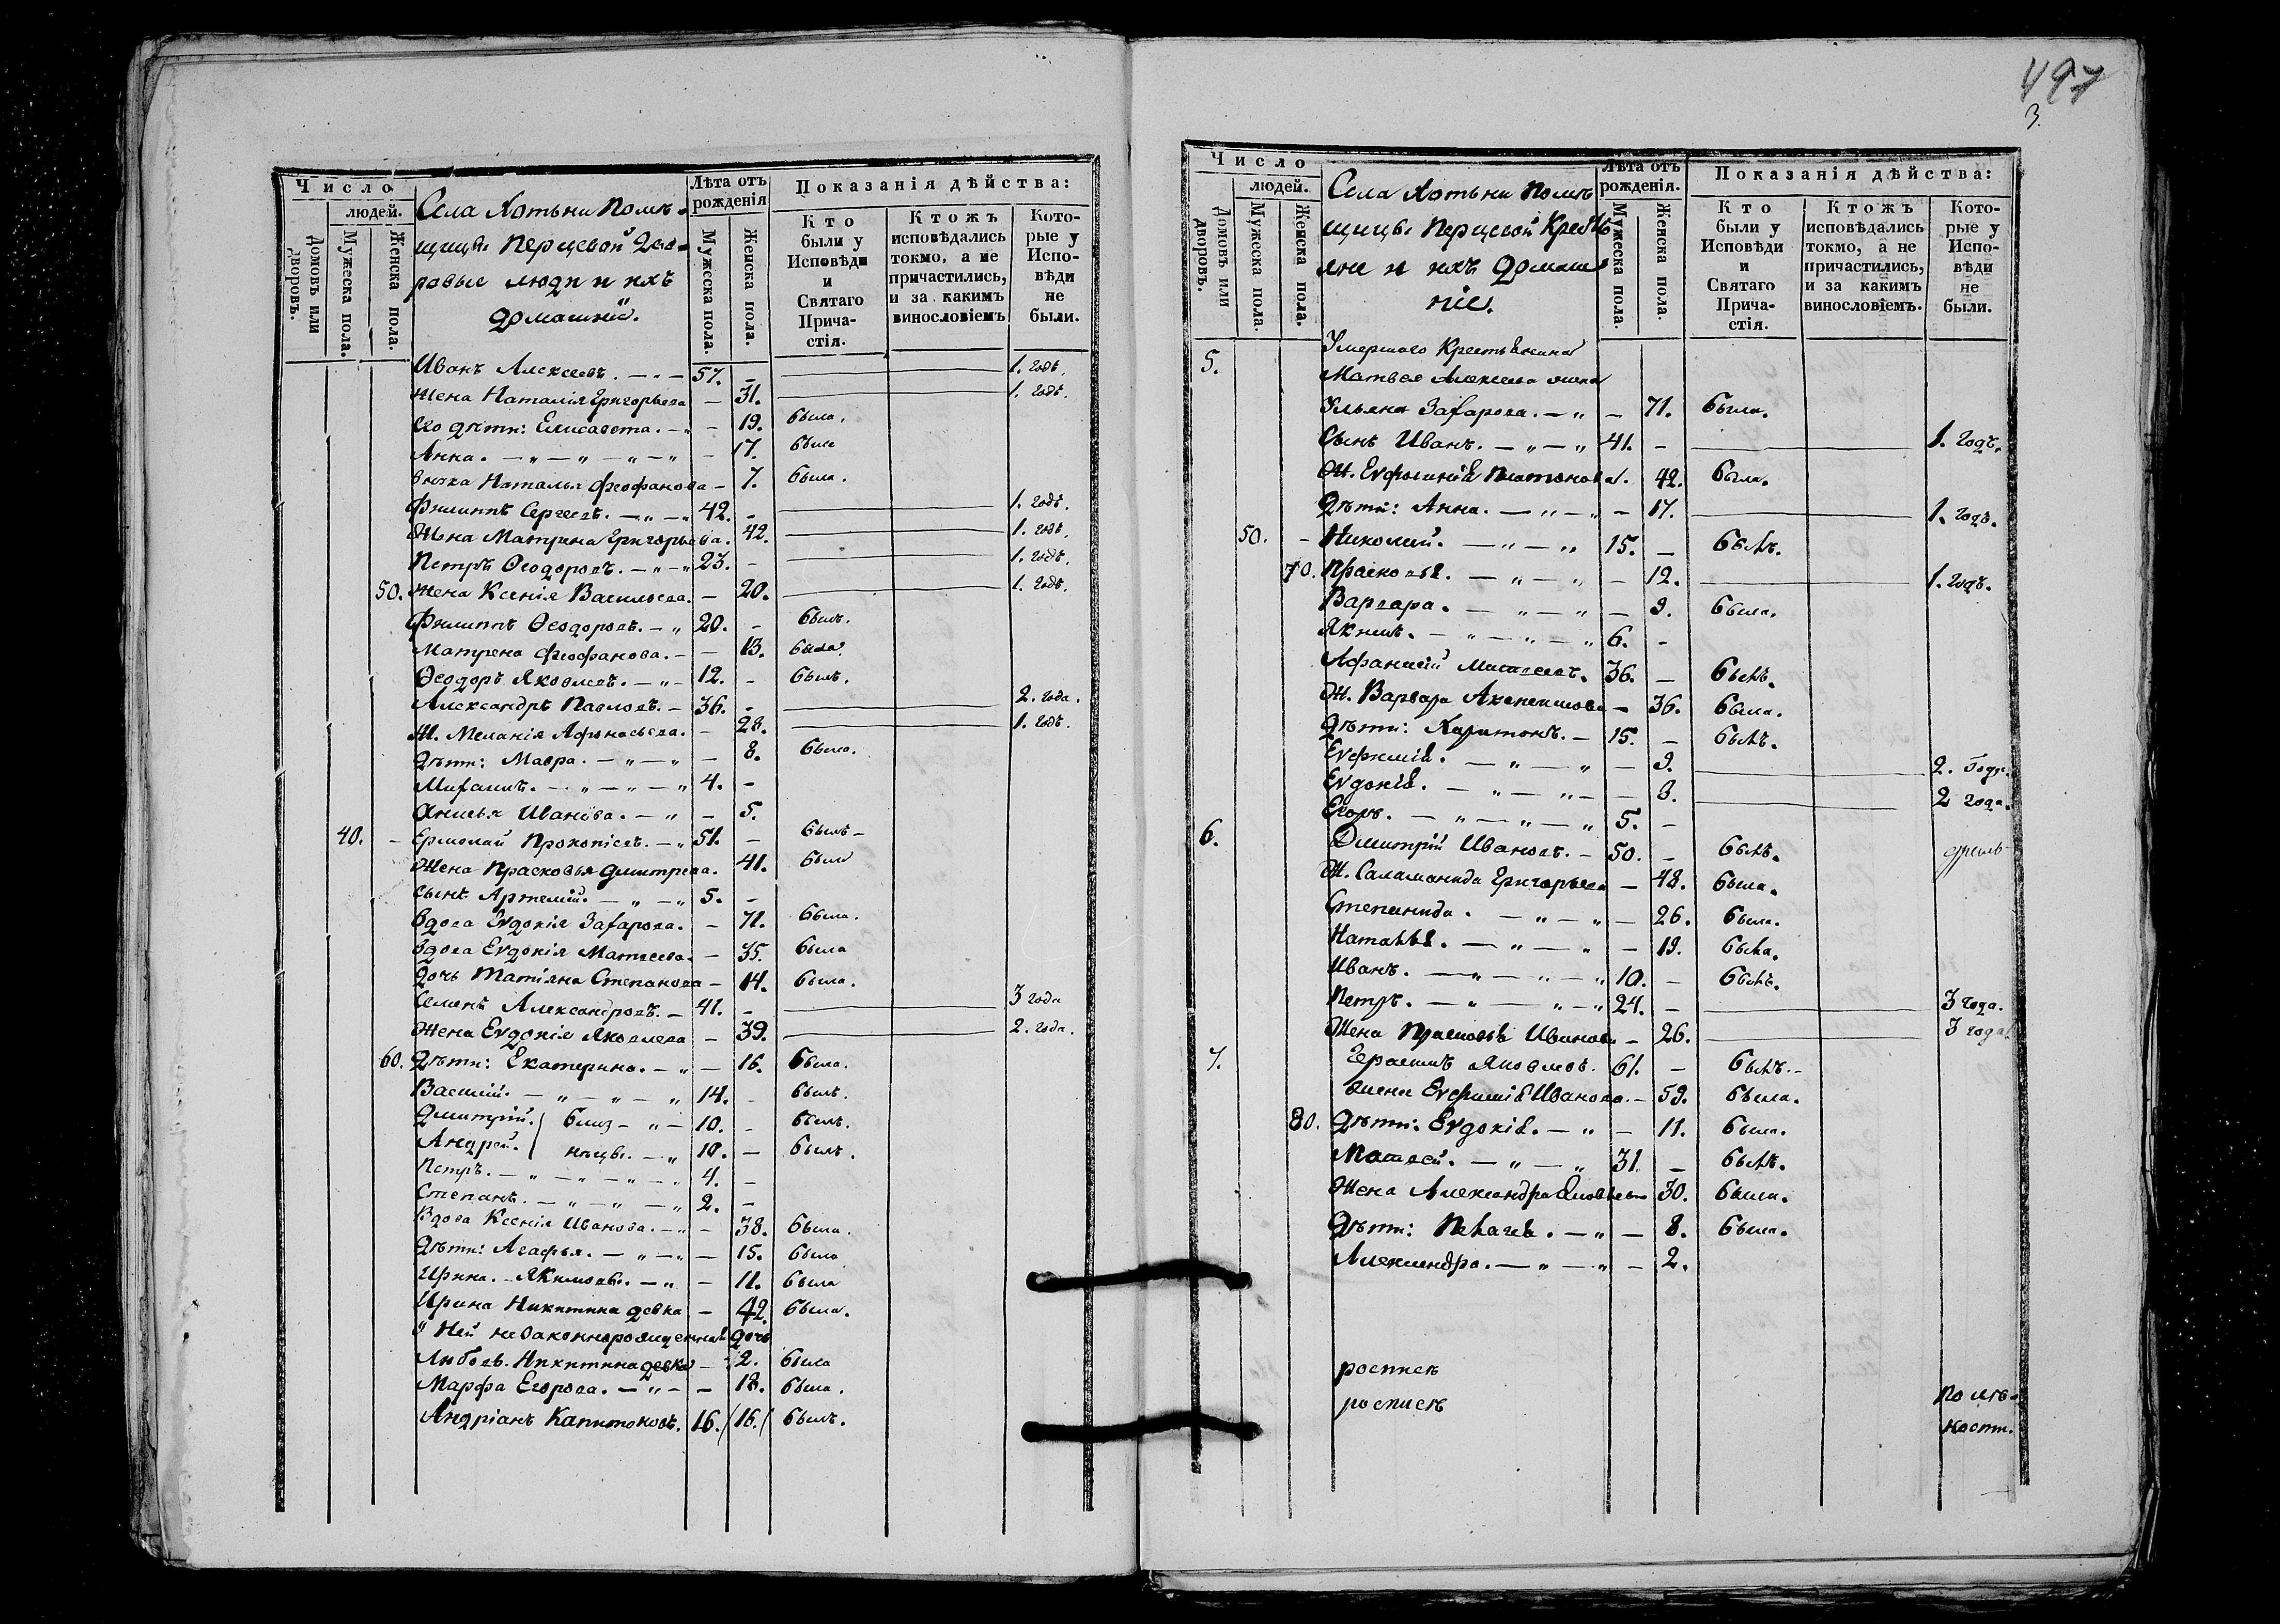 497
3.
Число
людей.
Домовъ или дворовъ.
Мужеска пола.
Женска пола.
Села Хотьни Помѣ-
щицы Перцевой Дво-
ровые люди и ихъ
домашнii.
Лѣта отъ рожденія
Мужеска пола.
Женска пола.
Показанія дѣйства:
Кто были у Исповѣди и Святаго Причастія.
Ктожъ исповѣдались токмо, а не причастились, и за какимъ винословіемъ
Которые у Исповѣди не были.
Иванъ Алексеевъ. 57. - 1. годъ.
Жена Наталія Григорьева - 31. 1. годъ.
Его дѣти: Елисавета. - 19. была.
Анна. - 17. была
Внучка Наталья Феофанова - 7. была.
Филиппъ Сергеевъ. 42. - 1. годъ.
Жена Матрена Григорьева. 42. 1. годъ.
Петръ Ѳеодоровъ. 23. - 1. годъ.
50. Жена Ксенія Васильева. - 20. 1. годъ.
Филиппъ Ѳеодоровъ. 20. - былъ.
Матрена Феофанова. - 13. была.
Ѳеодоръ Яковлевъ. 12. - былъ.
Александръ Павловъ. 36. - 2. года.
Ж. Меланія Афонасьева. - 28. 1. годъ.
Дѣти: Мавра. - 8. была.
Михаилъ. 4. -
Анисья Иванова. - 5.
40. - Ермолай Прокопіевъ. 51. - былъ
Жена Прасковья Дмитрева. 41. была
Сынъ Артемій. 5. -
Вдова Евдокія Захарова. - 71. была.
Вдова Евдокія Матвеева. - 35. была
Дочь Татіяна Степанова - 14. была.
Семенъ Александровъ. 41. - 3 года
Жена Евдокія Яковлева - 39. 2. года.
60. Дѣти: Екатерина. - 16. была.
Василій. 14. - былъ.
Дмитрій. близ- 10. - былъ.
Андрей. нецы. 10. - былъ.
Петръ. 4. -
Степанъ. 2. -
Вдова Ксенія Иванова. - 38. была.
Дѣти: Агафья. - 15. была
Ирина. Якимовы. - 11. была
Ирина Никитина девка - 42. была.
У Ней незаконнорожденная дочь
Любовь. Никитина девка - 2. была
Марфа Егорова. - 18. была.
Андріанъ Капитоновъ. 16. (16.( былъ.
Число
людей.
Домовъ или дворовъ.
Мужеска пола.
Женска пола.
Села Хотьни Помѣ
щицы Перцевой Крестья
яне и ихъ домаш
ніе.
Лѣта отъ рожденія.
Мужеска пола.
Женска пола.
Показанія дѣйства:
Кто были у Исповѣди и Святаго Причастія.
Ктожъ исповѣдались токмо, а не причастились, и за какимъ винословіемъ.
Которые у Исповѣди не были.
5. Умершаго Крестьянина
Матвея Алексеева жена
Ульяна Захарова. - 71. была.
Сынъ Иванъ. 41. - 1. годъ.
Ж. Евфросинія Платонова. 42. была.
Дѣти: Анна. - 17. 1. годъ.
50. - Николай. 15. - былъ.
70. Прасковья. - 12. 1. годъ.
Варвара. - 9. была.
Якимъ. 6. -
Афанасій Матвеевъ. 36. - былъ.
Ж. Варвара - 36. была.
Дѣти: Харитонъ. 15. - былъ.
Евфимія. - 9. 2. года.
Евдокія. - 8. 2 года.
Егоръ. 5. -
6. Димитрій Ивановъ. 50. - былъ.
Ж. Саламанида Григорьева - 48. была.
Степанида. - 26. была.
Наталья. - 19. была.
Иванъ. 10. - былъ.
Петръ. 24. - 3 года.
Жена Прасковья Иванова - 26. 3 года
7. Герасимъ Яковлевъ. 61. - былъ.
жена Евфимія Иванова. - 59. была.
80. Дѣти: Евдокія. - 11. была.
Матвей. 31. - былъ.
Жена Александра 30. была.
Дѣти: Пелагея. - 8. была.
Александра. - 2.
роспись
роспись